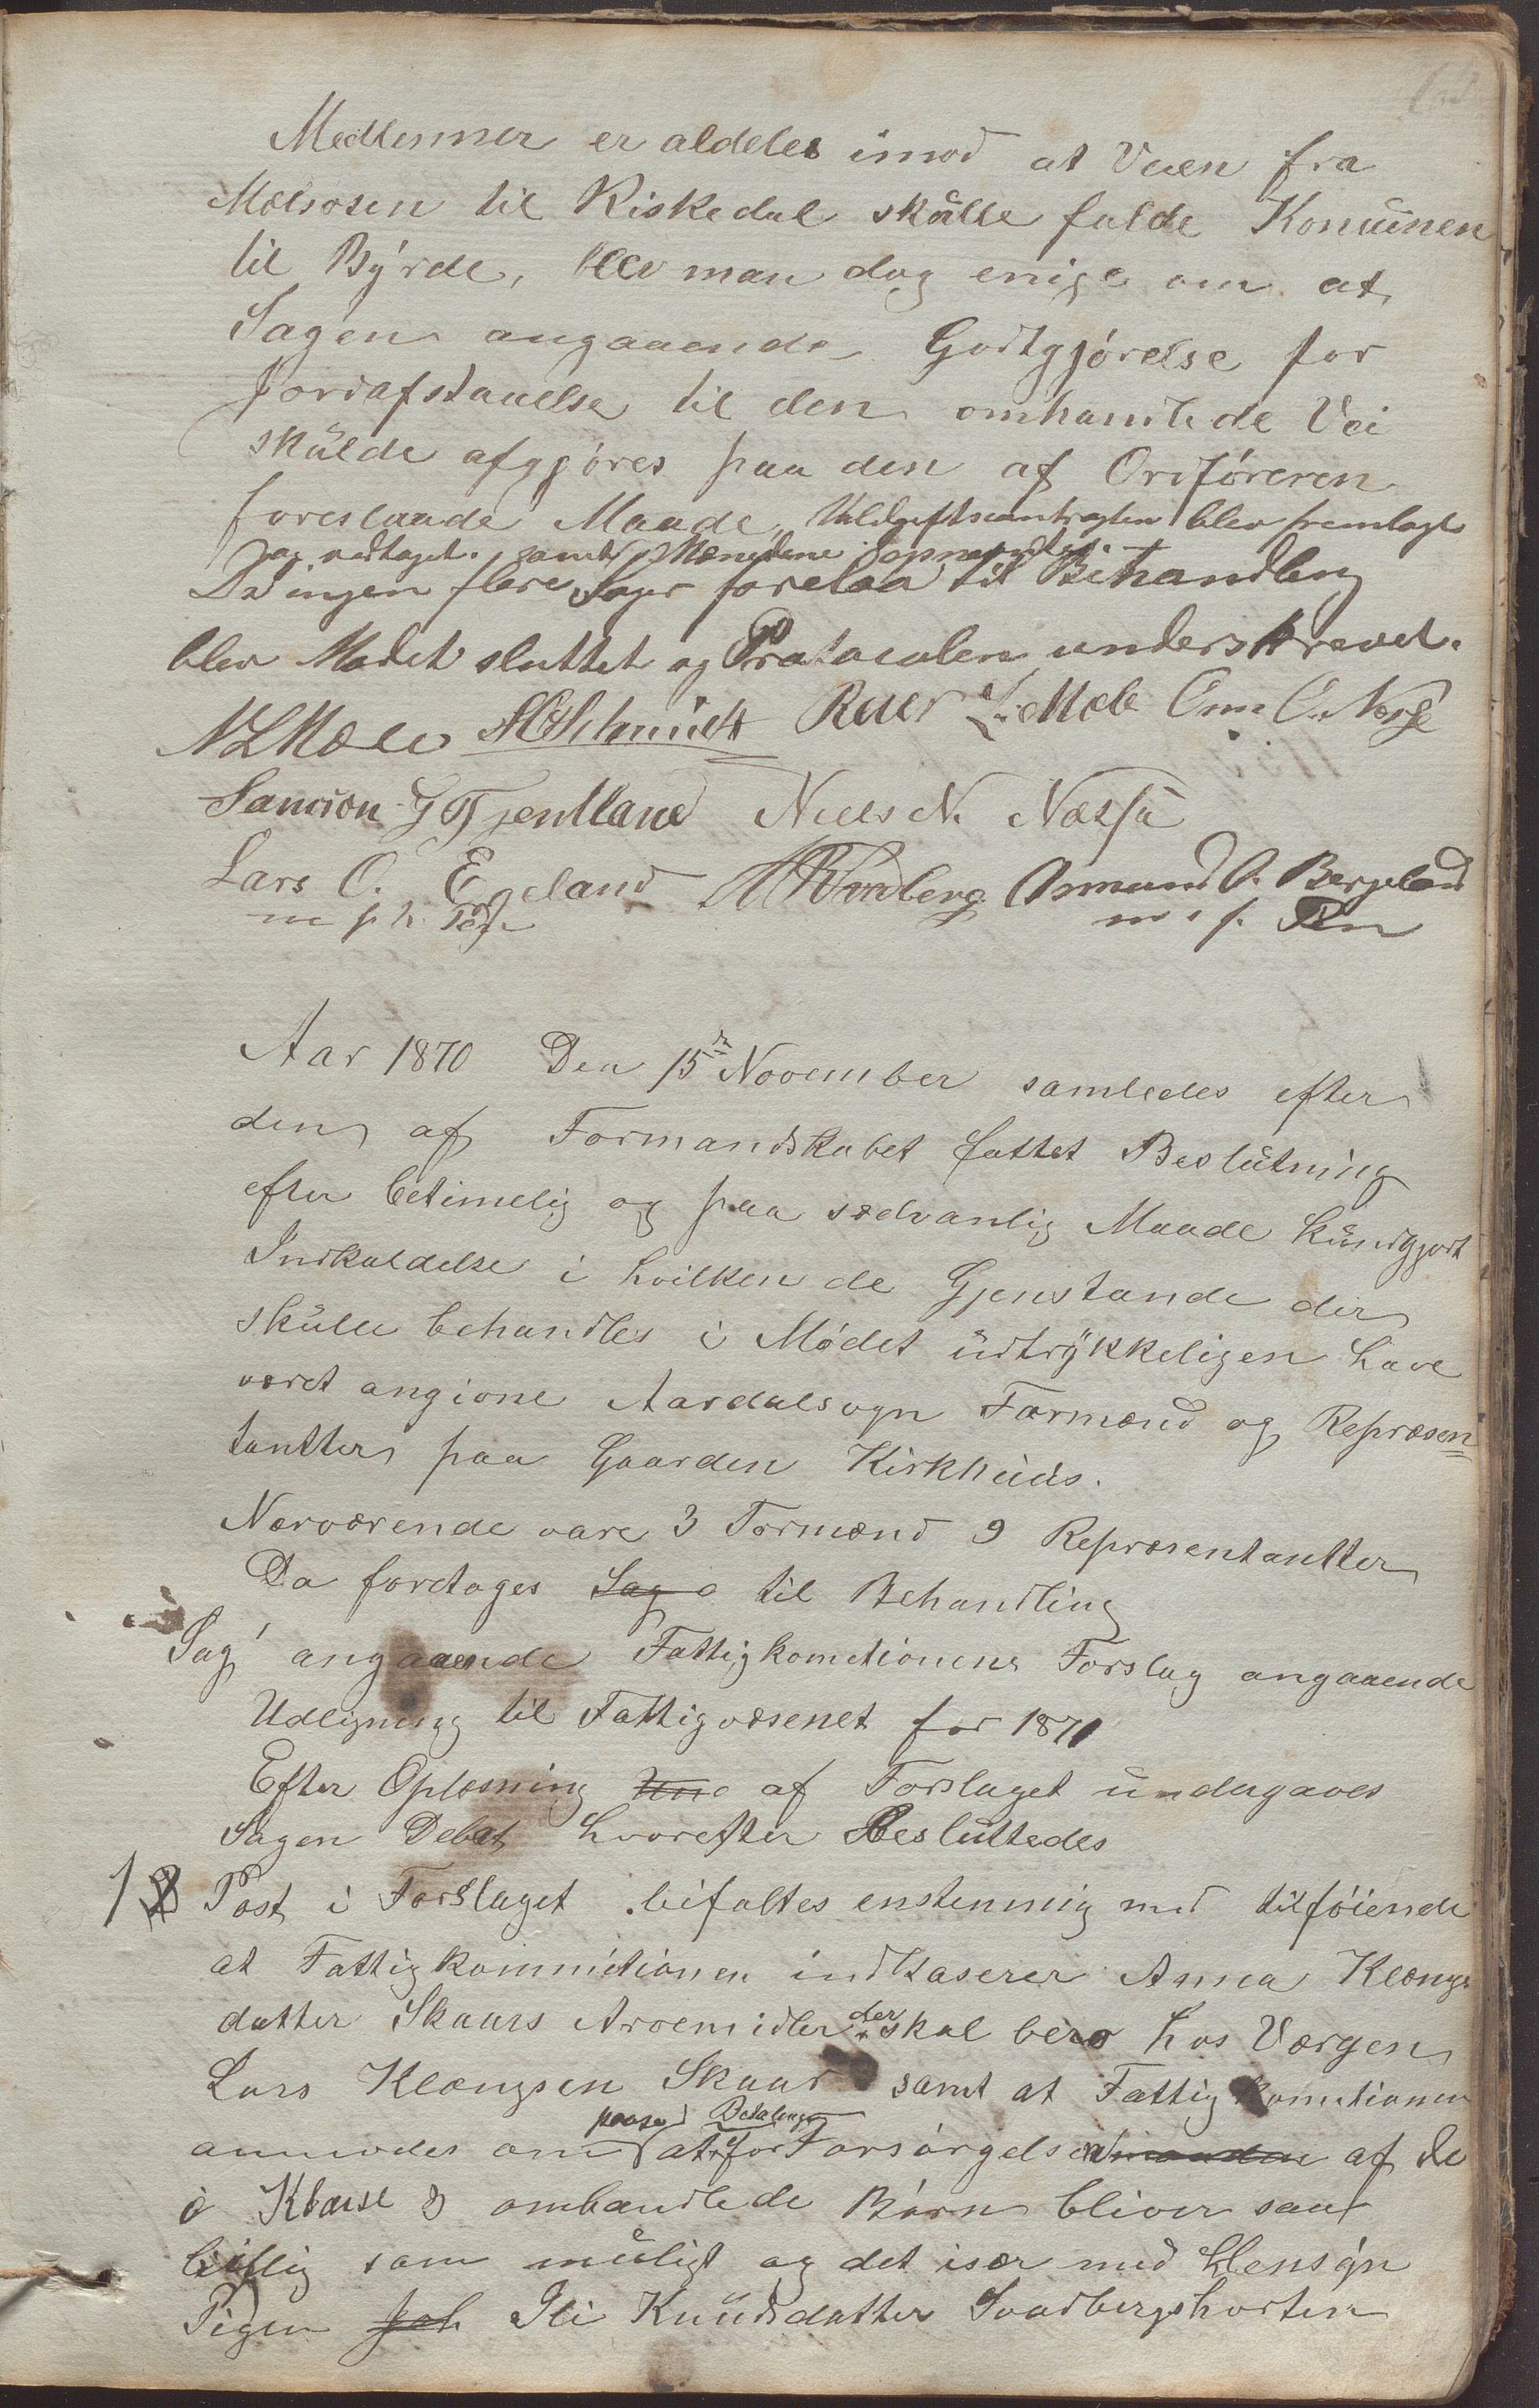 Medlemmer er aldeles imod at Veien fra
Mælsosen til Riskedal skulle falde Komunen
til Byrde, blev man dog enige om at
Sagen angaaende Godtgjørelse for
Jordafstaaelse til den omhandlede Vei
skulde afgjøres paa den af Ordføreren
foreslaade Maade, Voldgiftscontragten blev fremlagt
og vedtaget. samt Mændene opnævnt.
Da ingen flere Sager forelaa til Behandling
blev Mødet sluttet og Protocolen underskrevet.
N L Mæle Schmidt Reier L. Mæle Omn O. Nessе
Samson G Tjentland Niels N. Næsse
Lars O. Egeland Svadberg Asmund O. Bergeland
m p. Pen
Aar 1870 Den 15de November samledes efter
den af Formandskabet fattet Beslutning
efter betimelig og paa sedvanlig Maade kundgjort
Indkaldelse i hvilken de Gjenstande der
skulle behandles i Mødet udtrykkeligen have
været angivne Aardalsogn Formænd og Repræsen=
tantter paa Gaarden Kirkhuus.
Nærværende vare 3 Formænd 9 Repræsentantter
Da foretoges Sag til Behandling
Sag 1 angaaende Fattigkometionens Forslag angaaende
Udligning til Fattigvæsenet for 1871
Efter Oplæsning af Forslaget undergaves
Sagen Debat hvorefter Besluttedes
1 Post i Forslaget bifaltes enstemmig med tilføiende
at Fattigkommitionen indkaserer Anna Klængs
datter Skaars Arvemidler der skal bero hos Værgen
Lars Klængsen Skaar samt at Fattigkomitionen
anmodes om at paase Betalingen for Forsørgelsen af de
i Klause 8 omhandlede Børn bliver saa
billig som muligt og det især med Hensyn
Pigen Joh Eli Knudsdatter Svadbergshorten